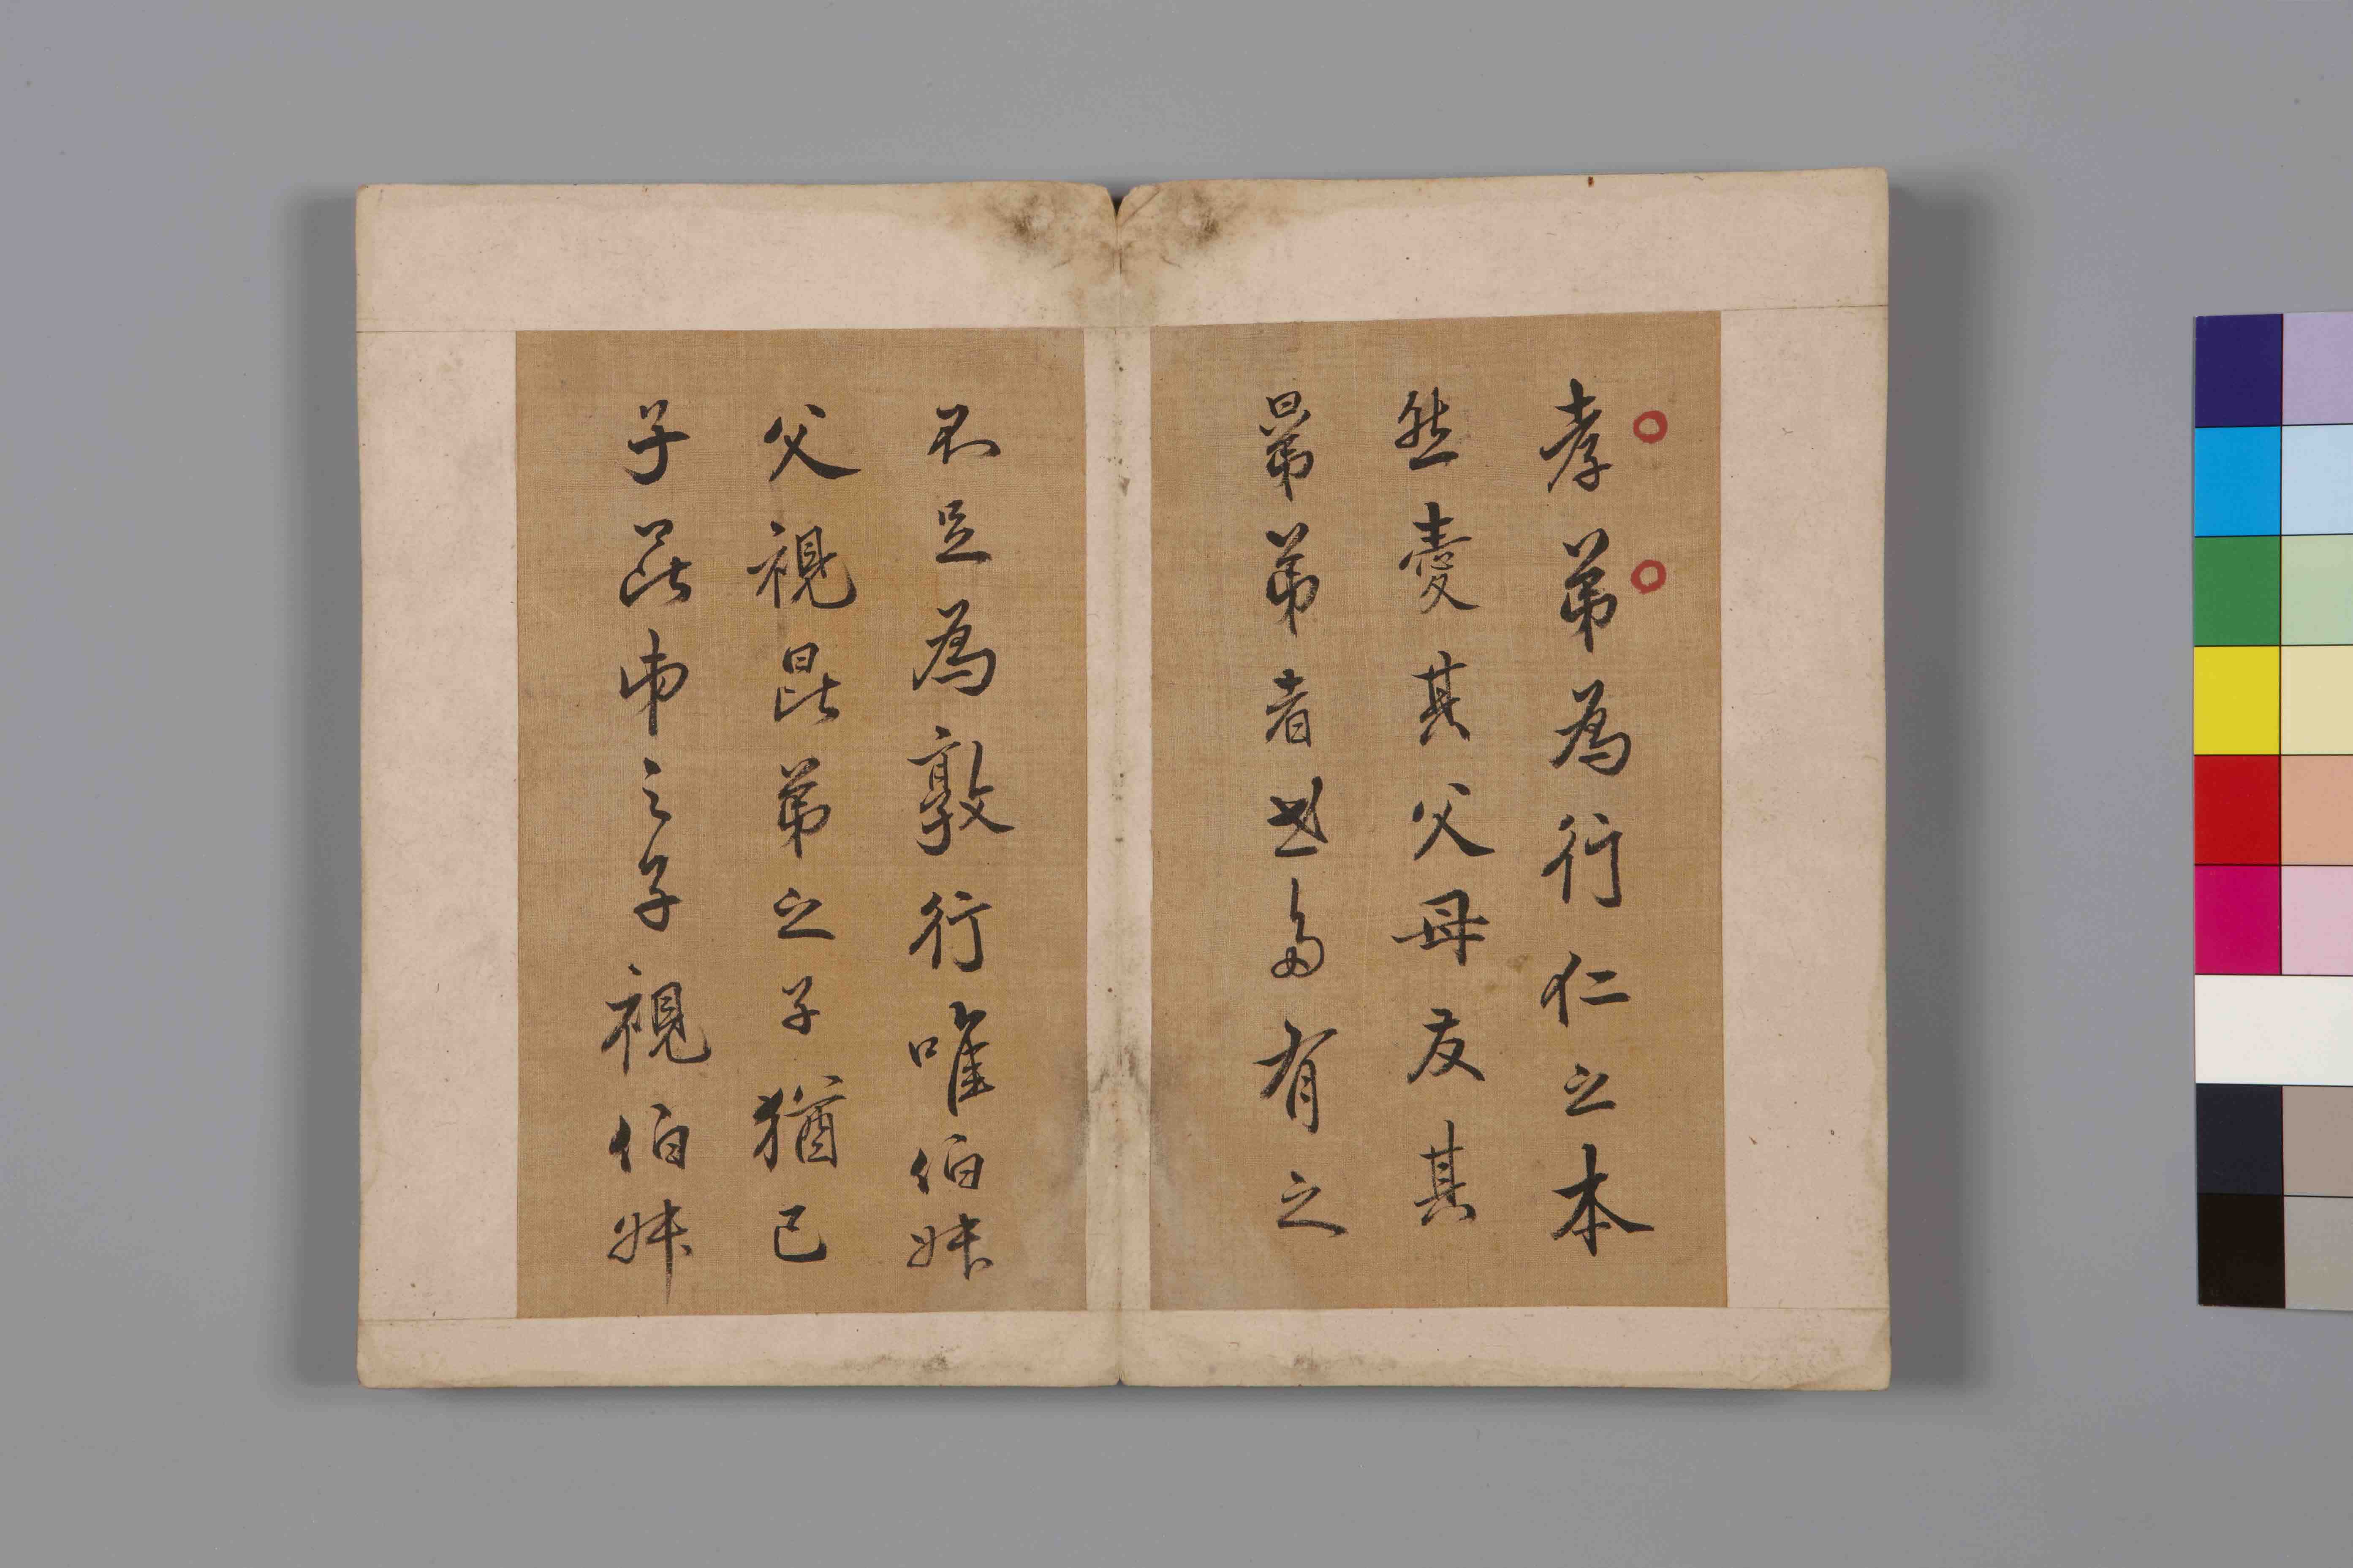 孝弟為行仁之本
然愛其父母友其
晜弟者世多有之
不足為敦行唯伯叔
父視昆弟之子猶己
子昆弟之子視伯叔